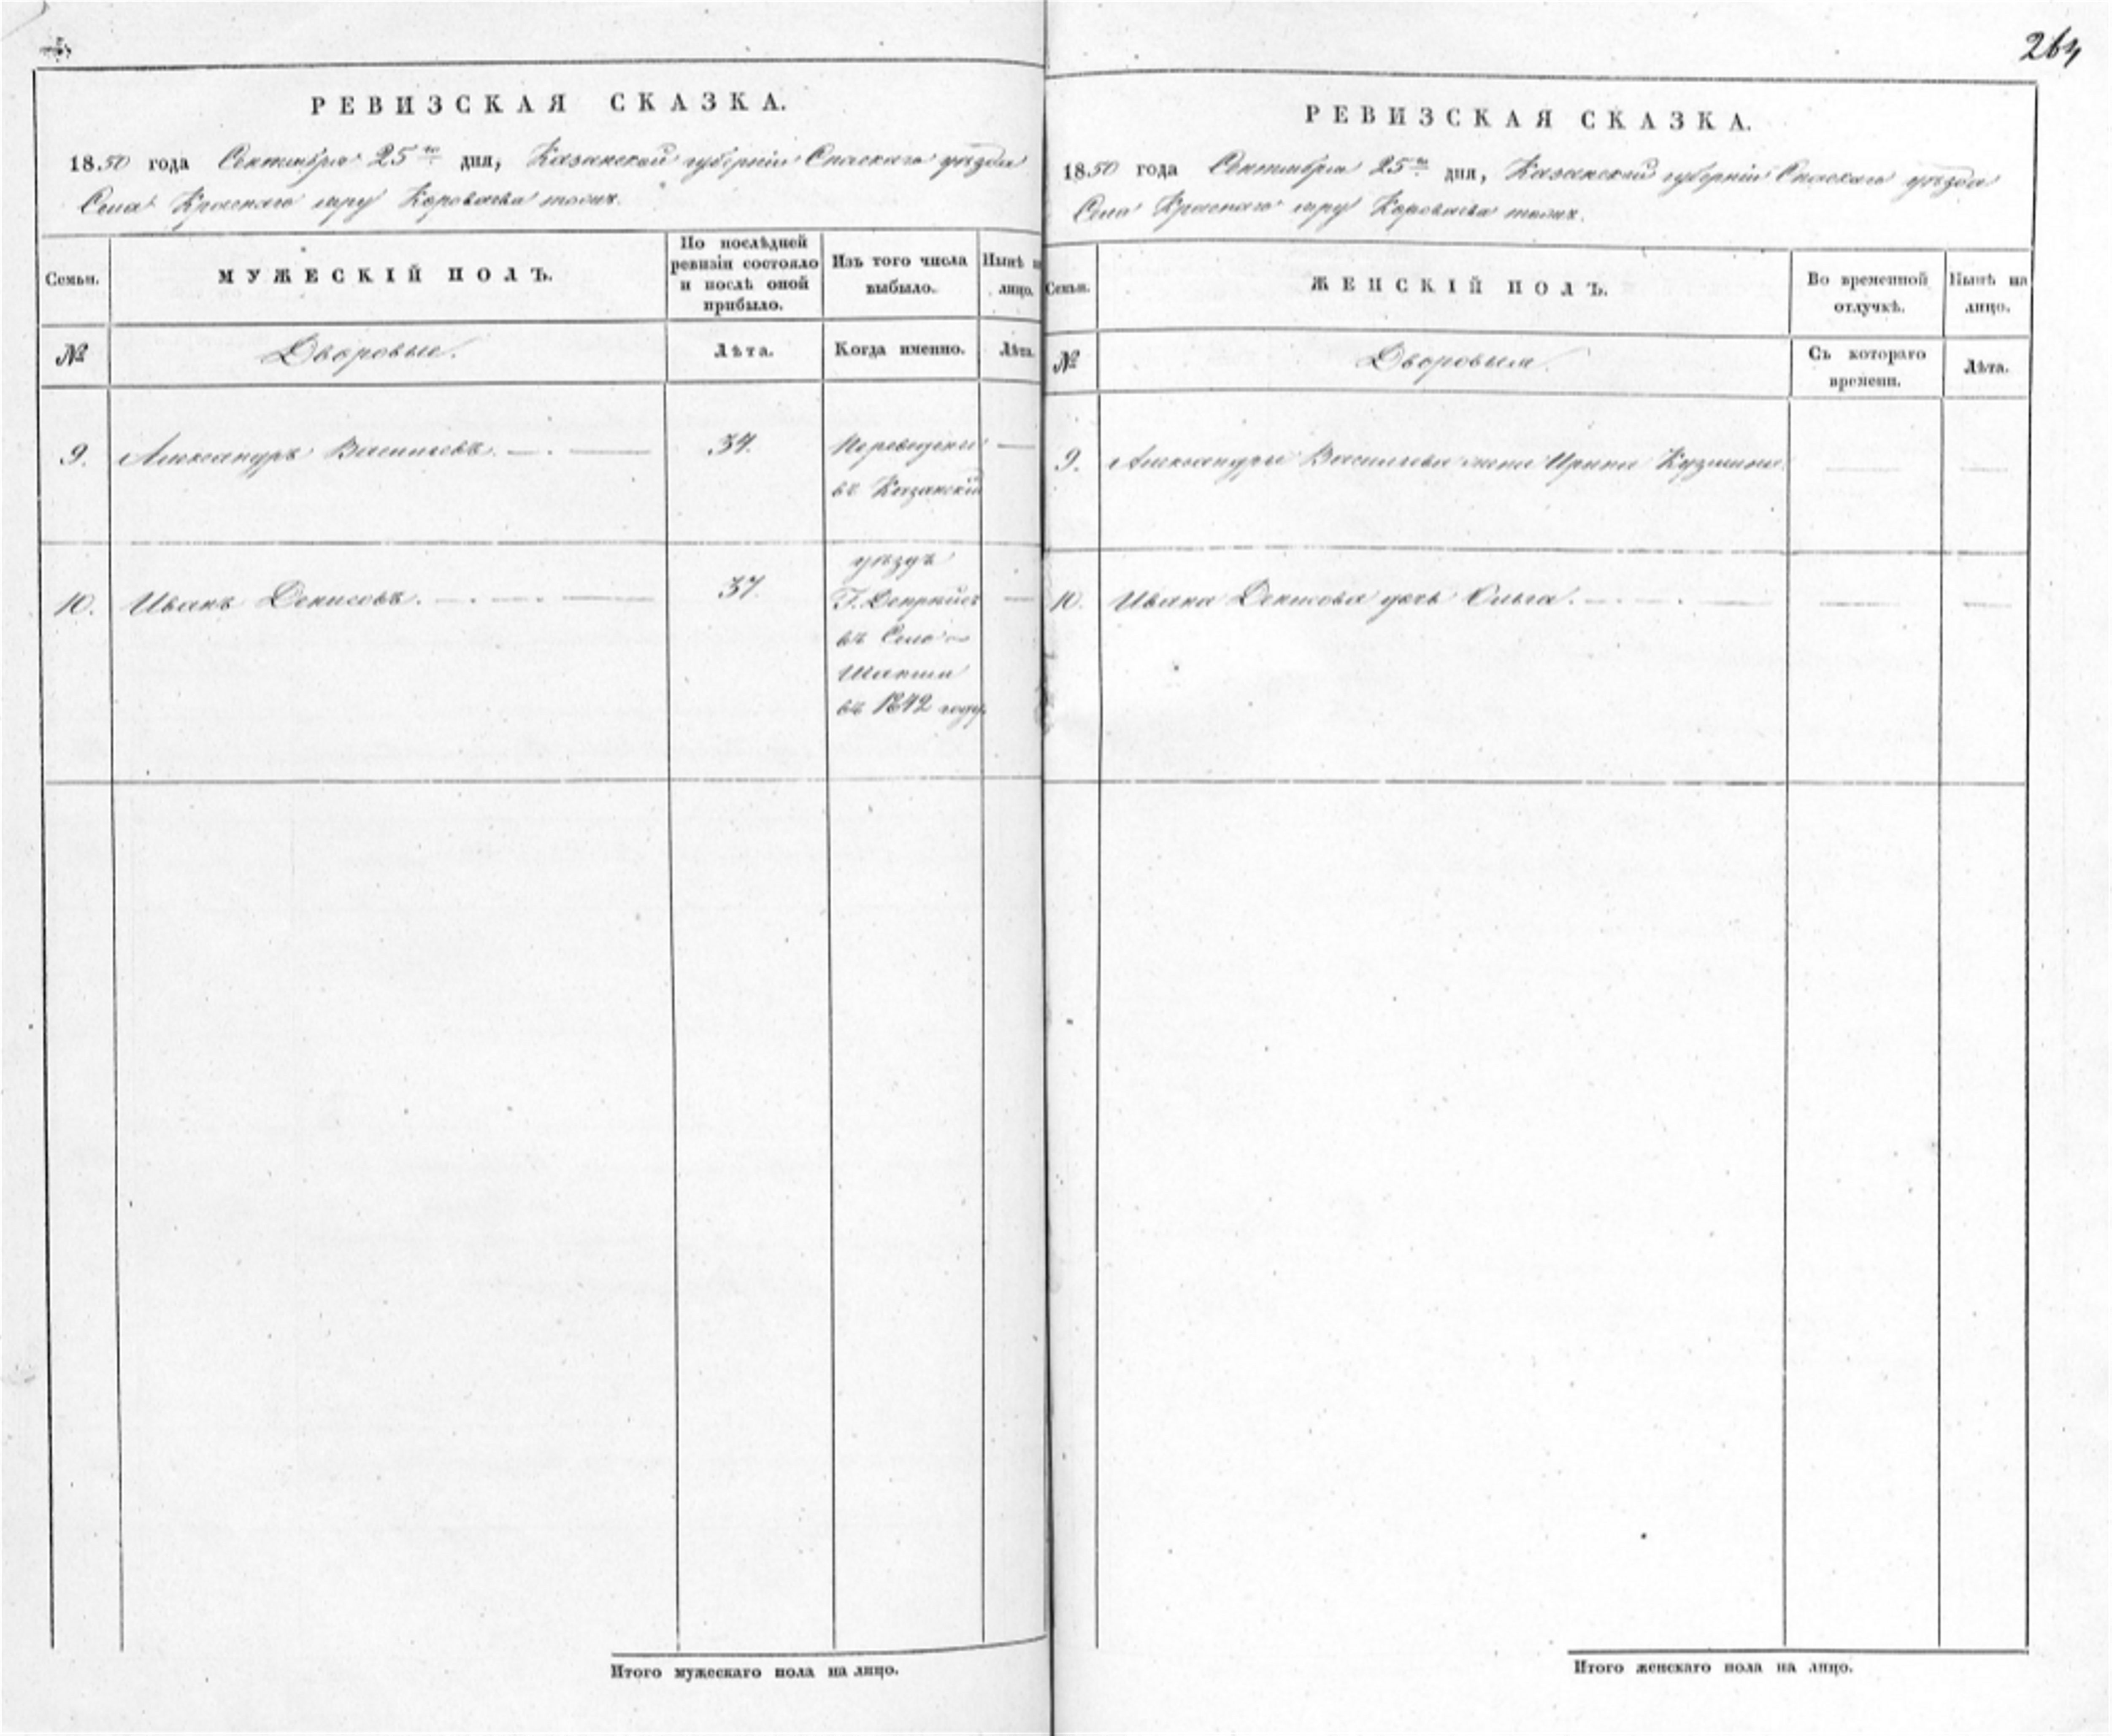 264
РЕВИЗСКАЯ СКАЗКА.
1850 года Сентября 25го дня, Казанской губерніи Спаскаго уѣзда
Села Краснаго яру Короваева тожъ.
Семьи.
МУЖЕСКІЙ ПОЛЪ.
По послѣдней ревизіи состояло и послѣ оной прибыло.
Изъ того числа выбыло.
Нынѣ на лицо.
№
Дворовые.
Лѣта.
Когда именно.
Лѣта.
9. Александръ Васильевъ. 34. Переведены
въ Казанскій
уѣздъ
10. Иванъ Денисовъ. 37.
въ Село
въ 1842 году.
Итого мужескаго пола на лицо.
РЕВИЗСКАЯ СКАЗКА.
1850 года Сентября 25го дня, Казанской губерніи Спаскаго уѣзда
Села Краснаго яру Короваева тожъ.
Семьи.
ЖЕНСКІЙ ПОЛЪ.
Во временной отлучкѣ.
Нынѣ на лицо.
№
Дворовыя.
Съ котораго времени.
Лѣта.
9. Александры Васильева жена Ирина Кузмина.
10. Ивана Денисова дочь Ольга.
Итого женскаго пола на лицо.